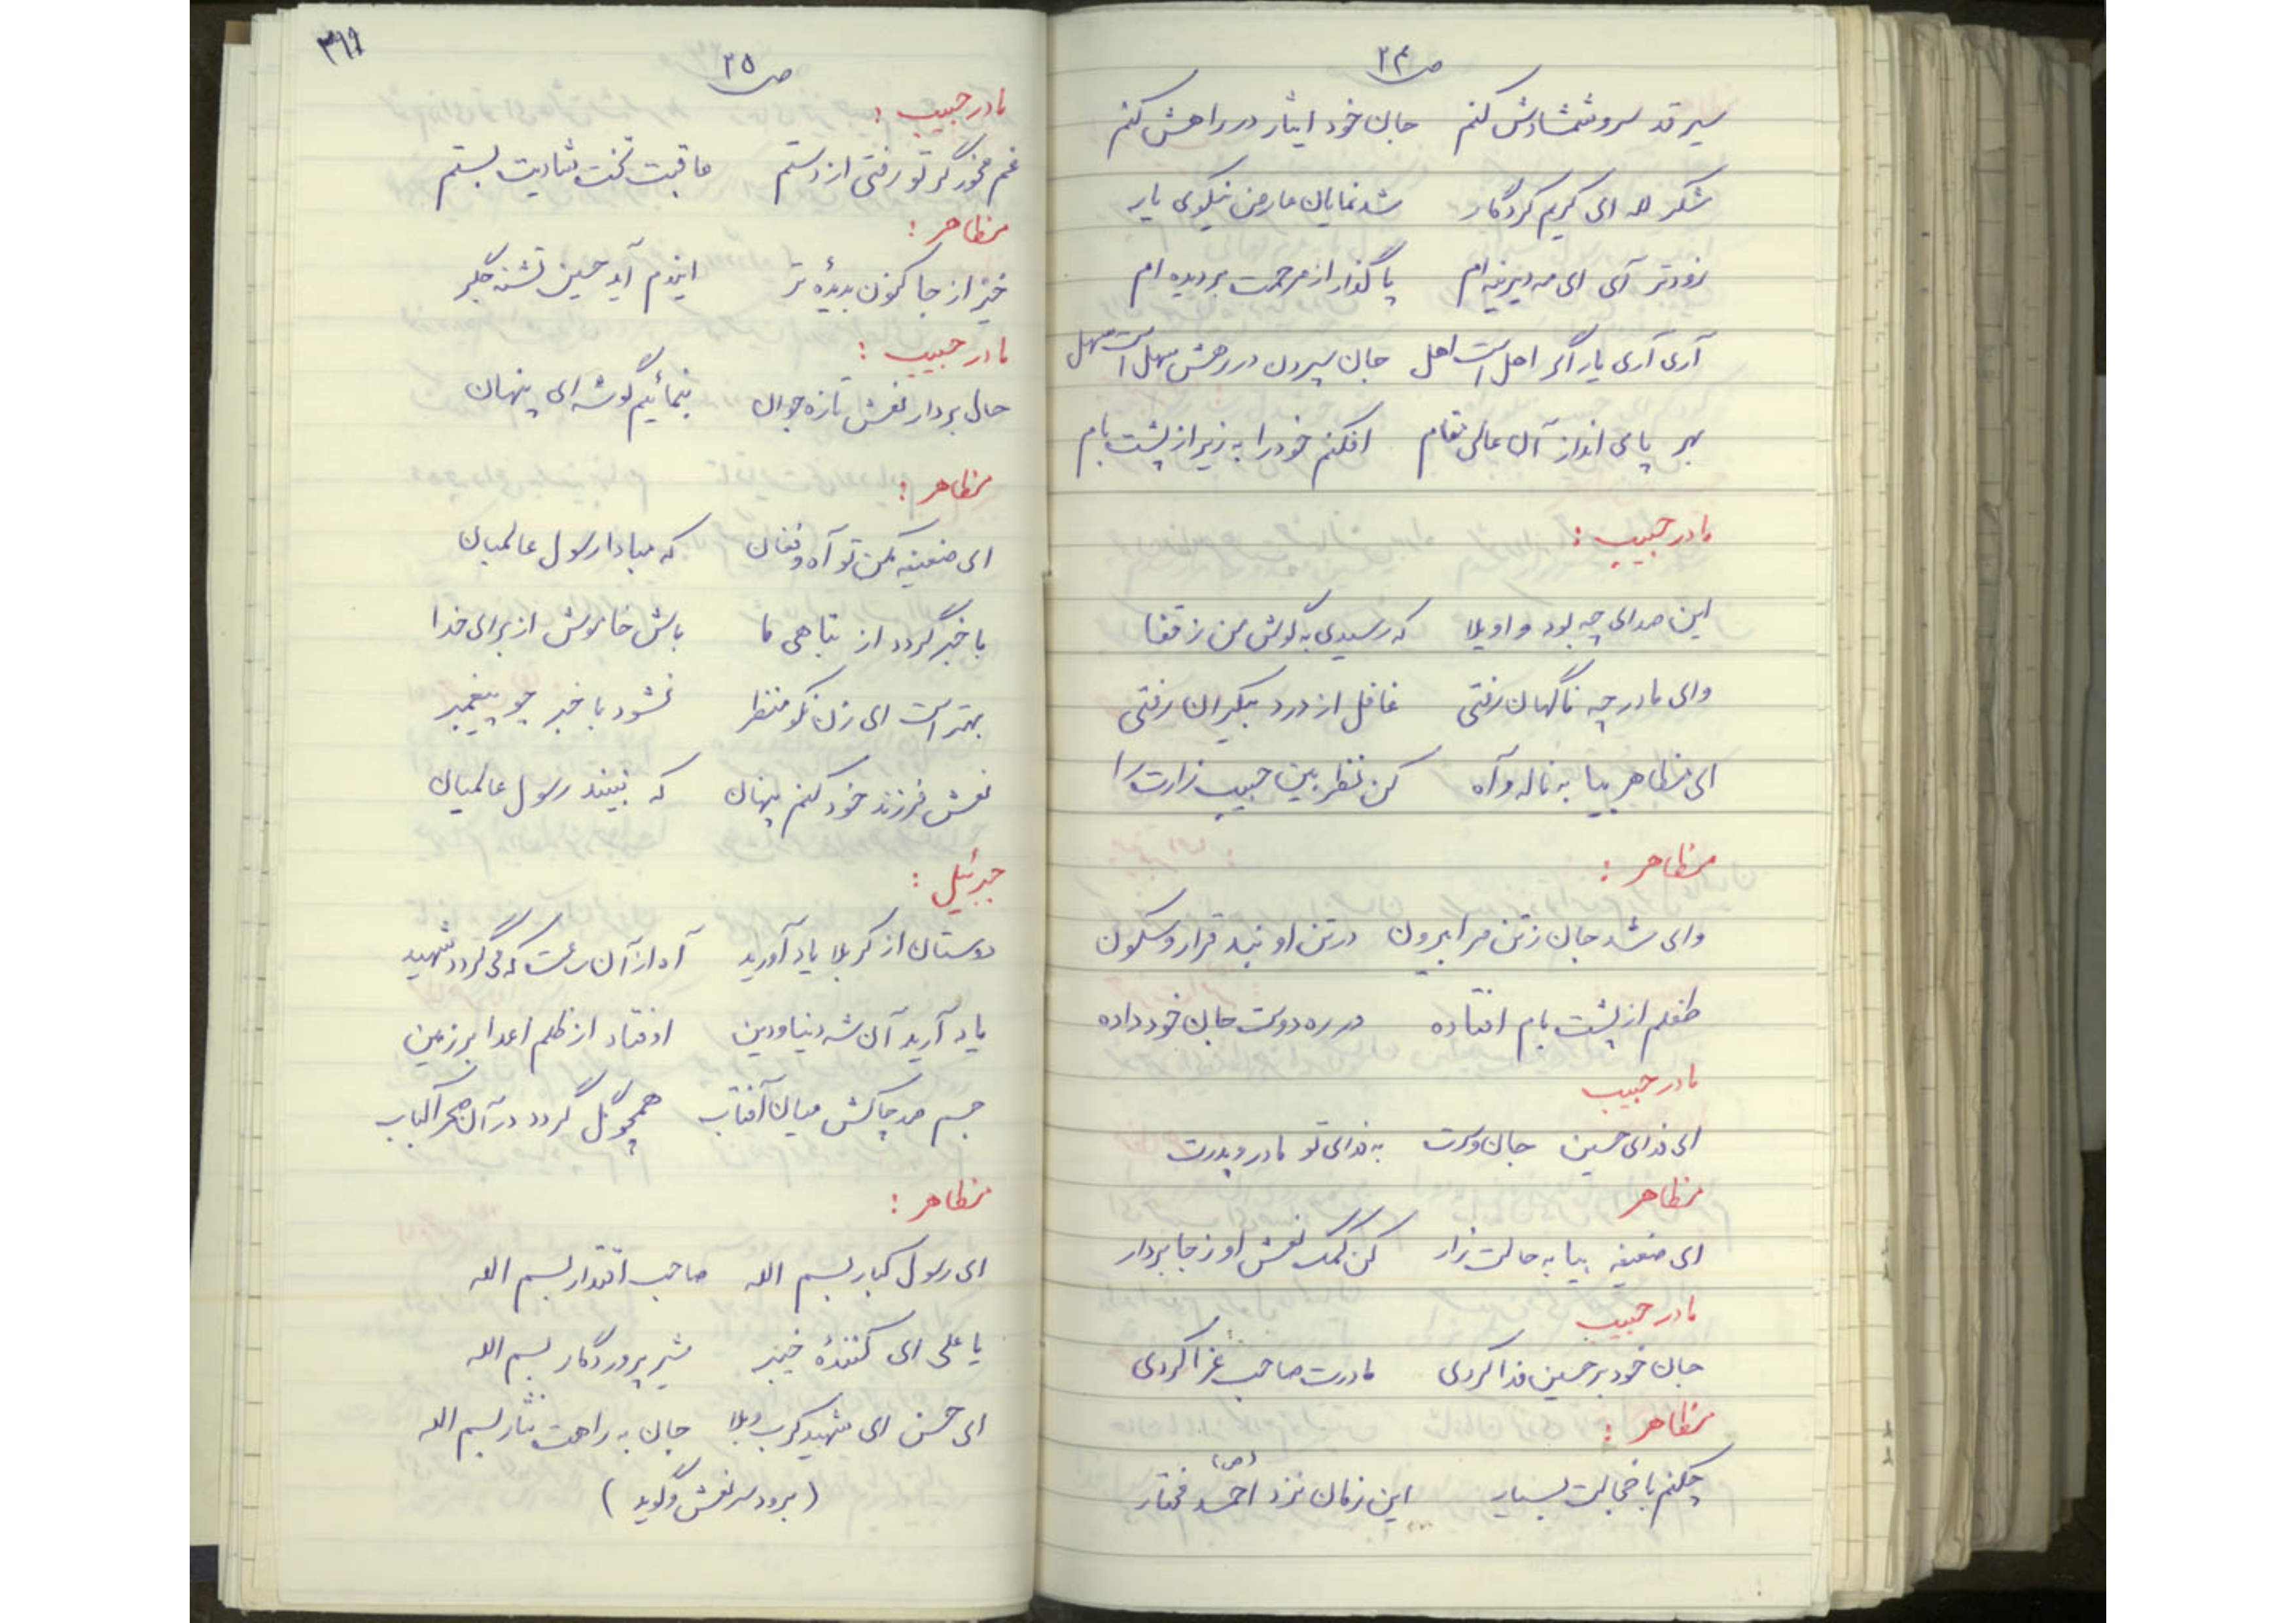 ص ۲۴
سیر قد سرو شمشادش کنم جان خود ایثار در راهش کنم
شکر لله ای کریم کردگار شد نمایان عارض نیکوی یار
زودتر آی ای مه دیرینه ام پا گذار از مرحمت بر دیده ام
آری آری یار اگر اهل است اهل جان سپردن در رهش سهل است سهل
بهر پای انداز آن عالی مقام افکنم خود را به زیر از پشت بام
مادر حبیب :
این صدای چه بود واویلا که رسیدی به گوش من ز قفا
وای مادر چه ناگهان رفتی غافل از درد بیکران رفتی
ای مظاهر بیا به ناله و آه کن نظر بین حبیب زارت را
مظاهر :
وای شد جان ز تن مرا بیرون در تن او نبد قرار و سکون
طفلم از پشت بام افتاده در ره دوست جان خود داده
مادر حبیب
ای فدای حسین جان و سرت به فدای تو مادر و پدرت
مظاهر
ای ضعیفه بیا به حالت زار کن کمک نعش او ز جا بردار
مادر حبیب
جان خود بر حسین فدا کردی مادرت صاحب عزا کردی
مظاهر :
چکنم با خجالت بسیار این زمان نزد احمد (ص) مختار
۳۹۹
ص ۲۵
مادر حبیب :
غم مخور گر تو رفتی از دستم عاقبت تخت شادیت بستم
مظاهر :
خیز از جا کنون بدیدهٔ تر ایندم آید حسین تشنه جگر
مادر حبیب :
حال بردار نعش تازه جوان بنمائیم گوشه ای پنهان
مظاهر :
ای ضعیفه مکن تو آه و فغان که مبادا رسول عالمیان
با خبر گردد از تباهی ما باش خاموش از برای خدا
بهتر است ای زن نکو منظر نشود با خبر چو پیغمبر
نعش فرزند خود کنم پنهان که نبیند رسول عالمیان
جبرئیل :
دوستان از کربلا یاد آورید آه از آن ساعت که می گردد شهید
یاد آرید آن شه دنیا و دین اوفتاد از ظلم اعدا بر زمین
جسم صد چاکش میان آفتاب همچو گل گردد در آن صحرا کباب
مظاهر :
ای رسول کبار بسم الله صاحب اقتدار بسم الله
یا علی ای کنندهٔ خیبر شیر پروردگار بسم الله
ای حسن ای شهید کرب و بلا جان به راهت نثار بسم الله
( برود سر نعش و گوید )